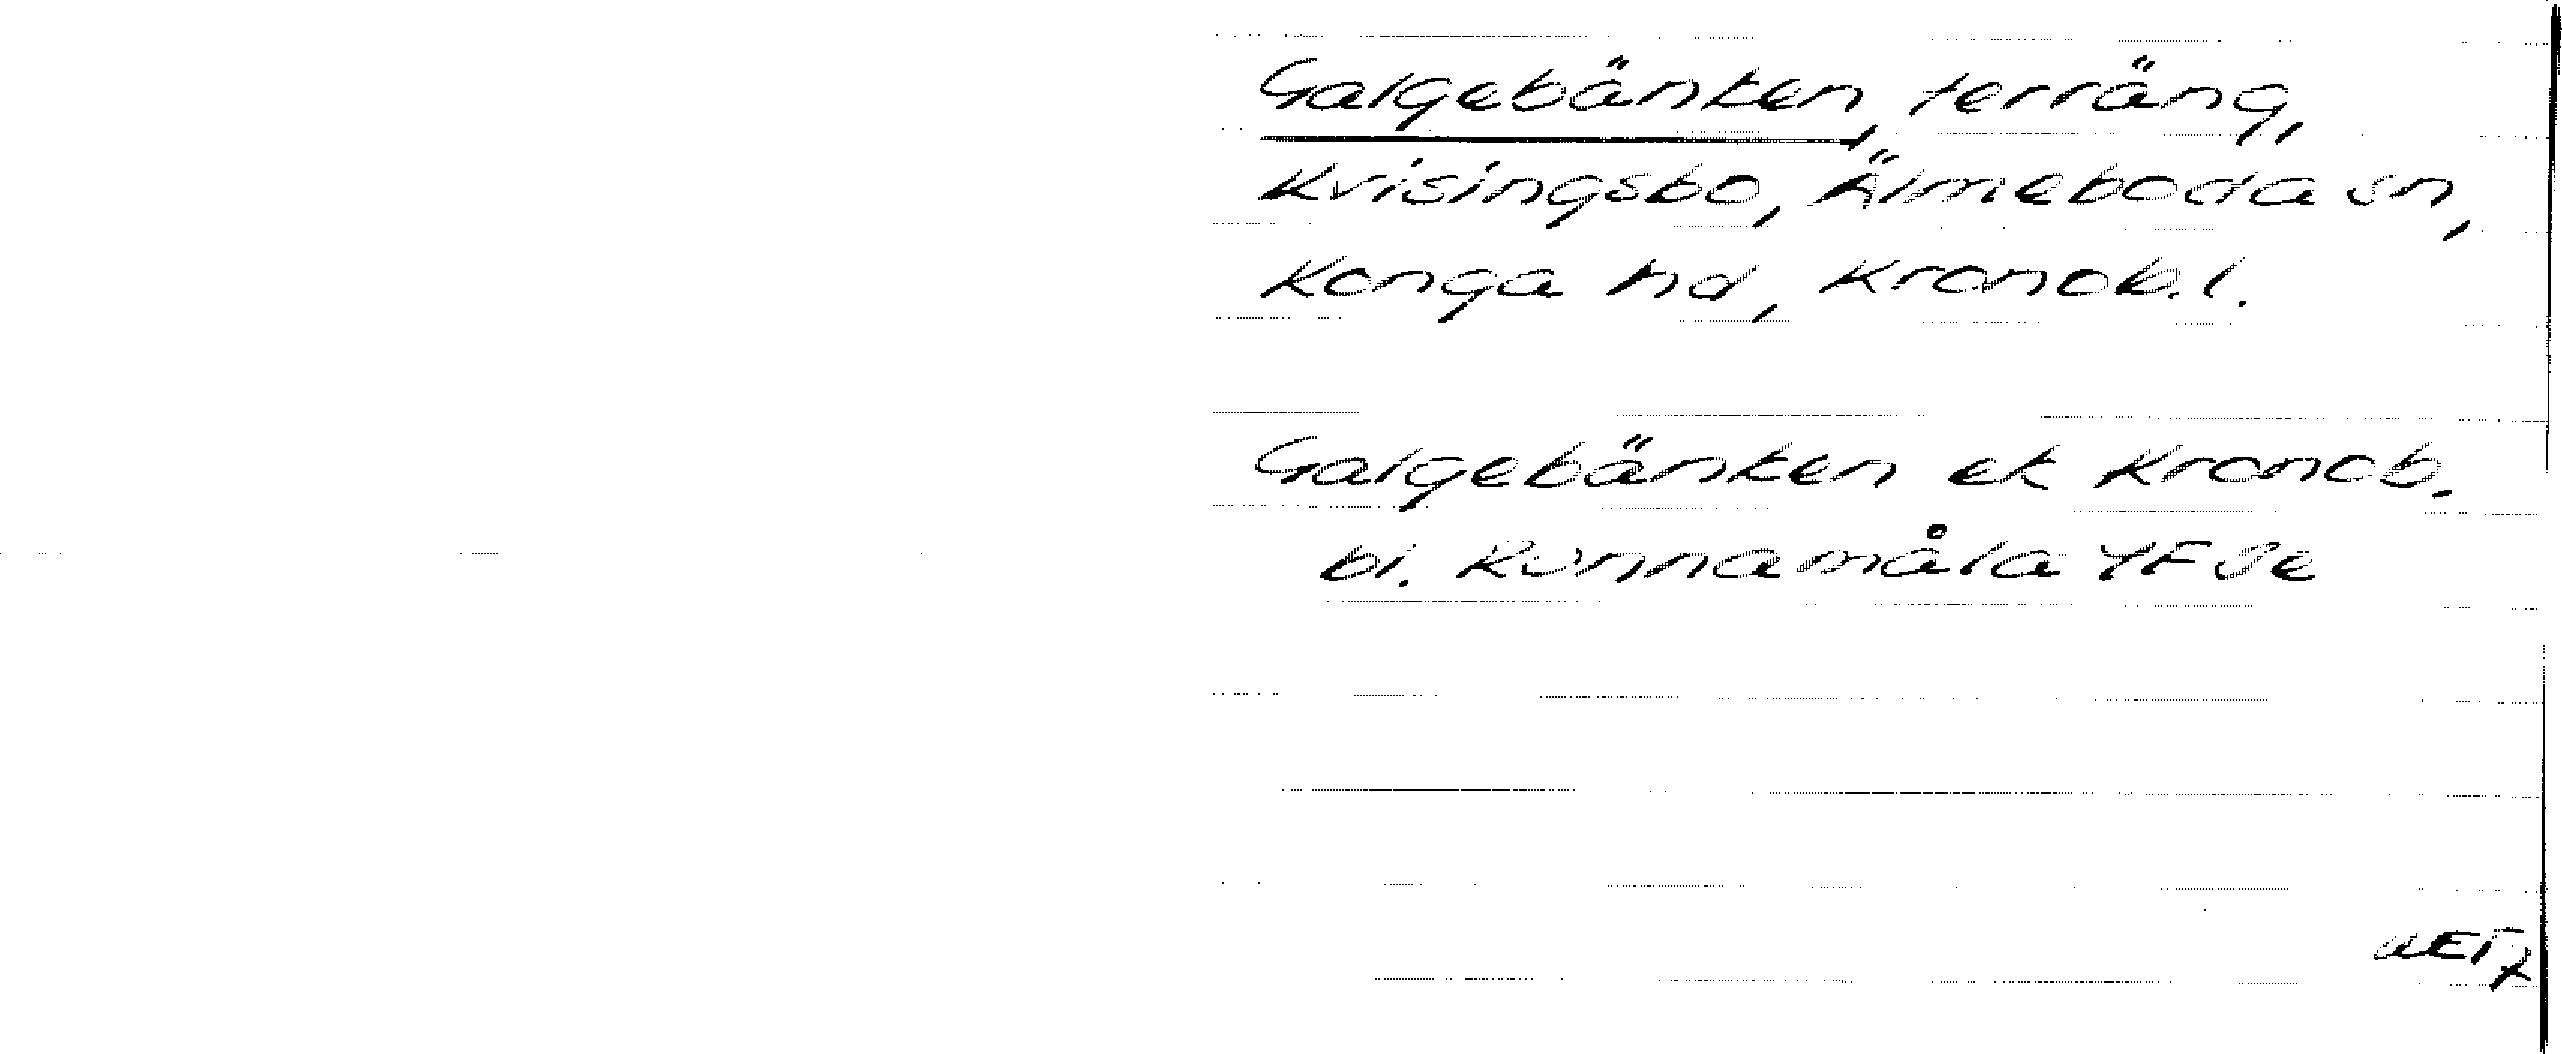 Galgebänken, terräng,
Kvisingsbo, Älmeboda sn,
Konga hd, Kronob.l.
Galgebänken ek Kronob.
bl. Runnamåla 4F9e